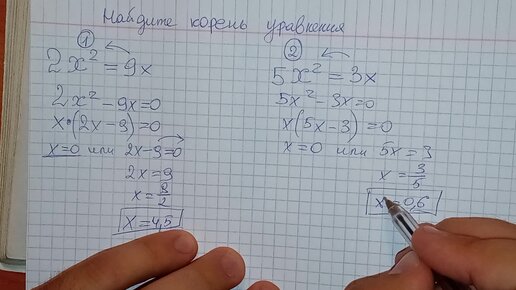 Найдите корень уравнения
1
2x² = 9x
2x² - 9x = 0
x·(2x - 9) = 0
x = 0 или 2x - 9 = 0
2x = 9
x = 9/2
x = 4,5
2
5x² = 3x
5x² - 3x = 0
x(5x - 3) = 0
x = 0 или 5x = 3
x = 3/5
x = 0,6